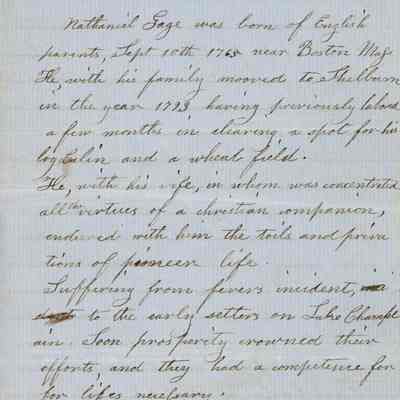 Nathaniel Gage was born of English
parents, Sept 10th 1765 near Boston Mas
He, with his family mooved to Shelburn
in the year 1793 having previously labord
a few months in clearing a spot for his
log Cabin and a wheat field.
He, with his wife, in whom was concentrated
all the virtues of a christian companion,
endured with him the toils and priva
tions of pioneer life.
Suffering from fevers incident,
to the early setters on Lake Champl
ain. Soon prosperity crowned their
efforts, and they had a competence for
for lifes necessary.